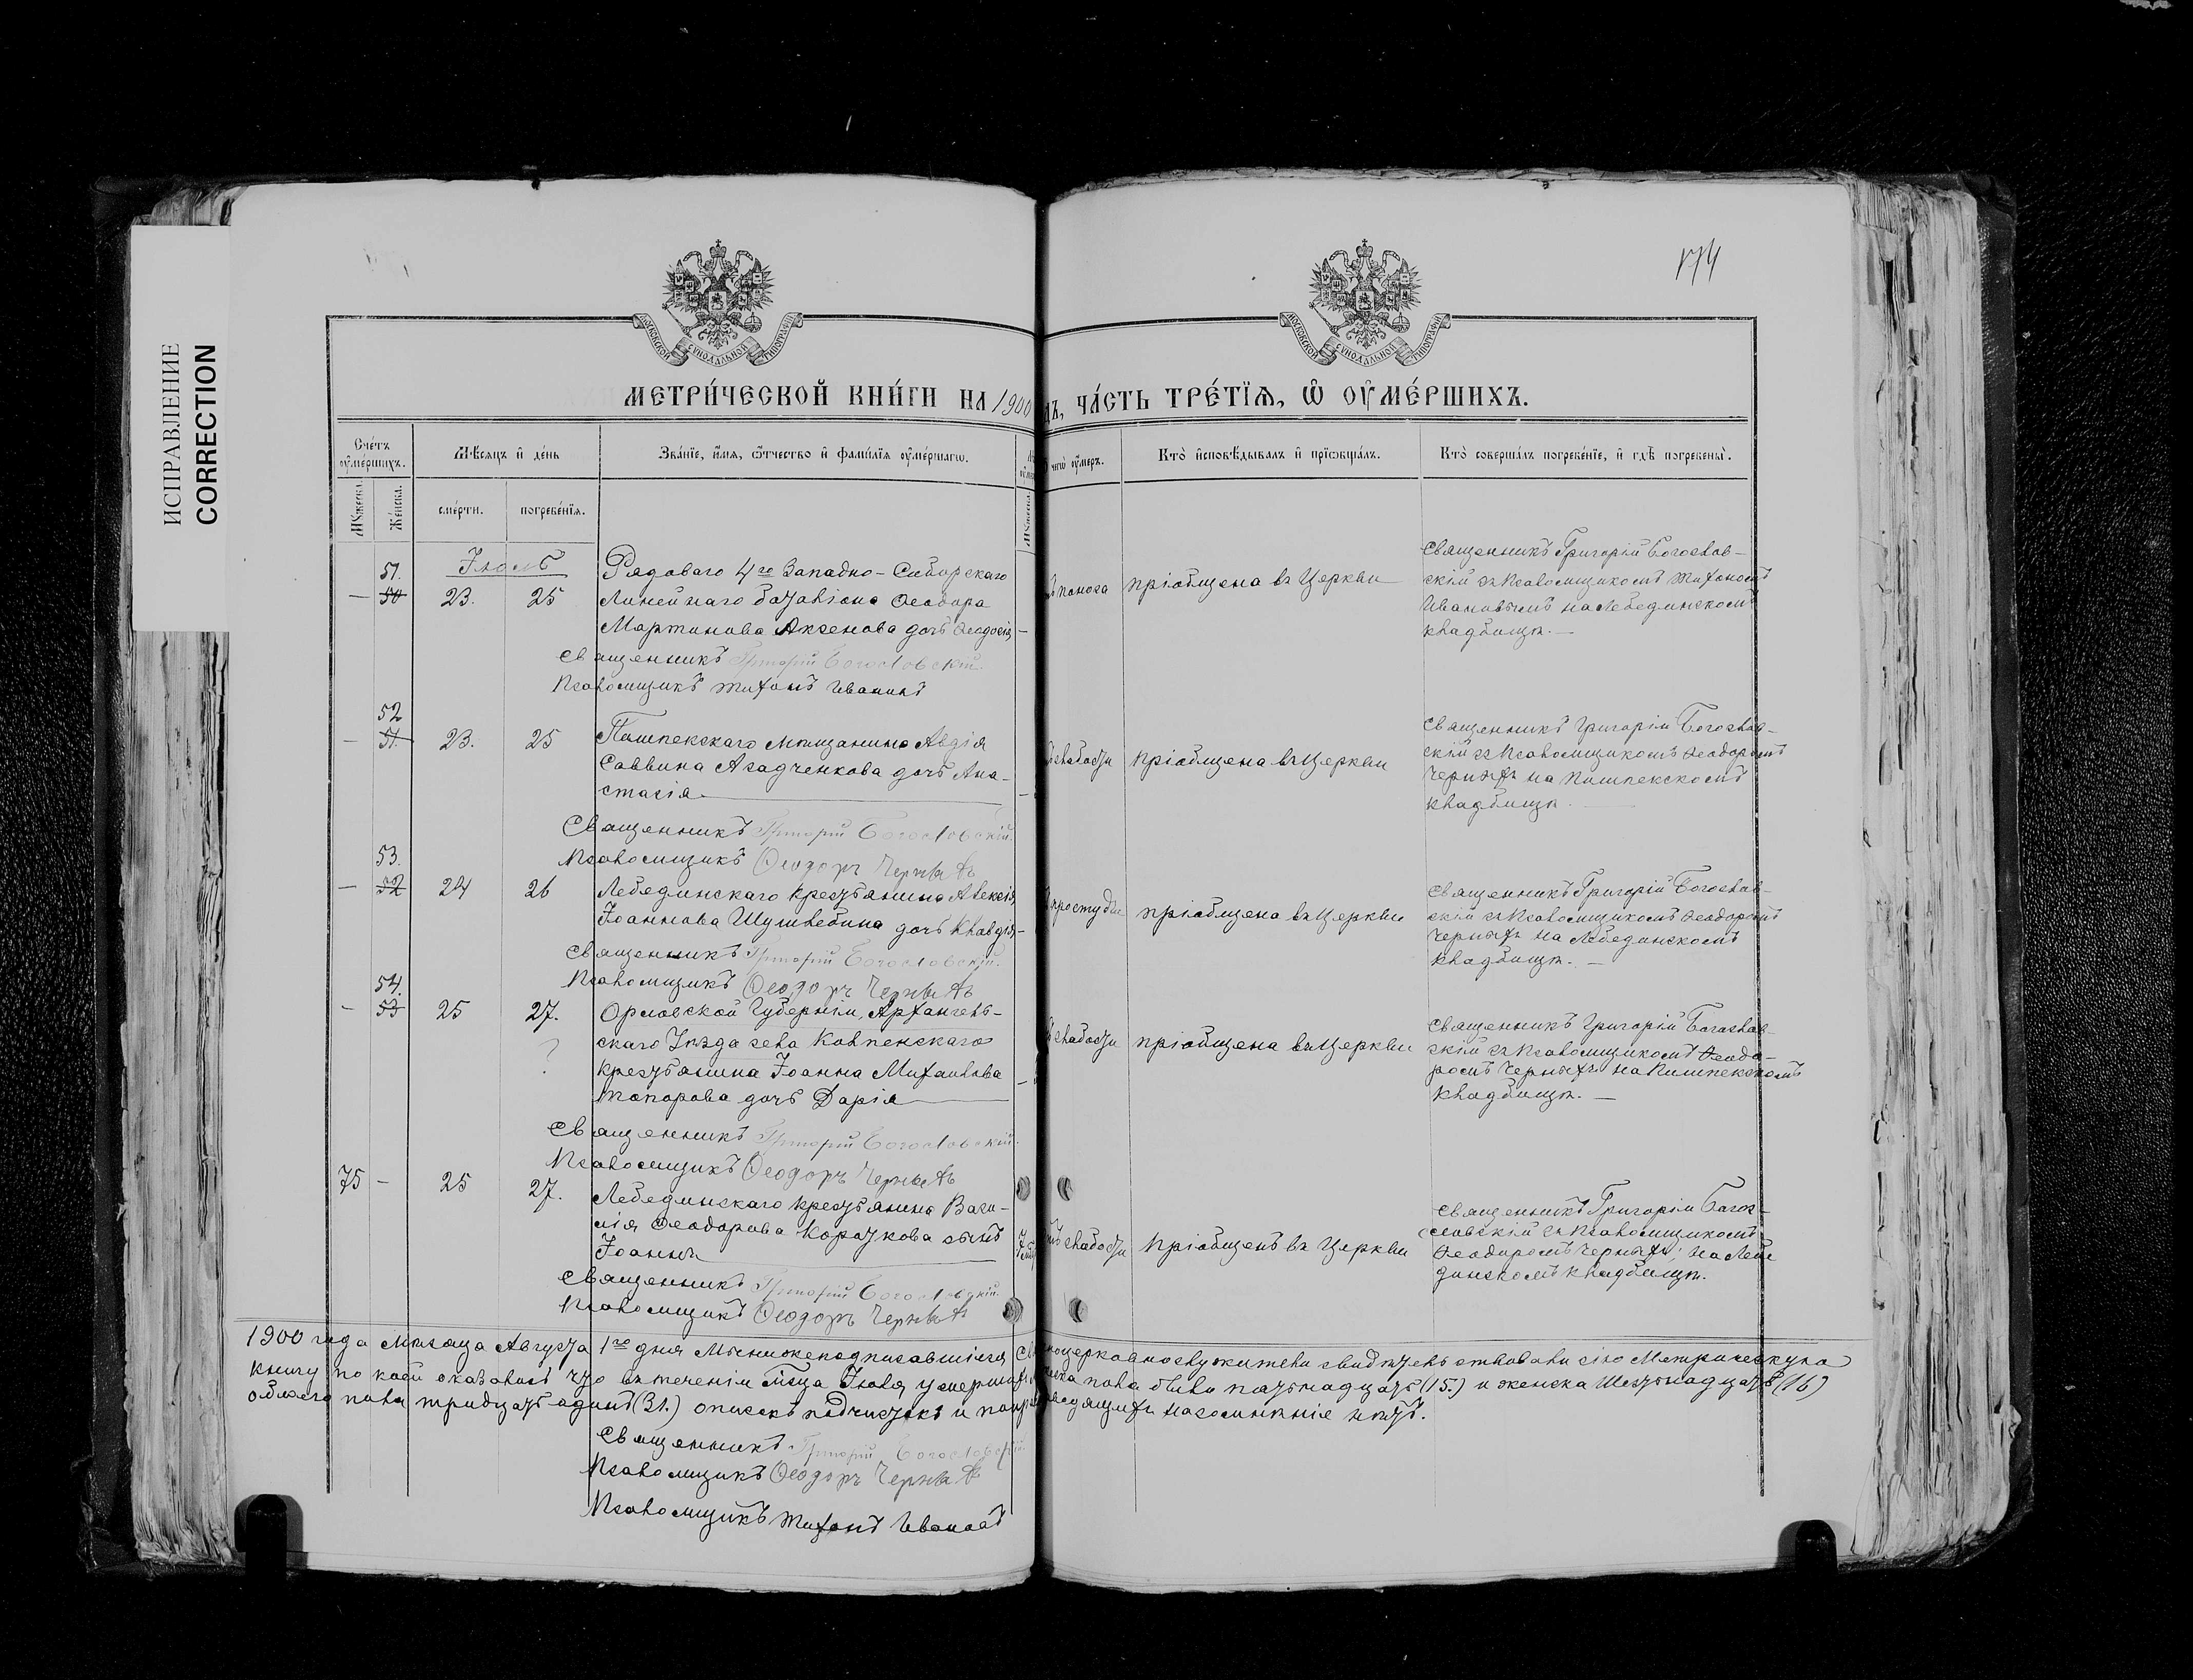 ИСПРАВЛЕНИЕ
CORRECTION
174
МОСКОВСКОЙ СѴНОДАЛЬНОЙ ТИПОГРАФІИ
МОСКОВСКОЙ СѴНОДАЛЬНОЙ ТИПОГРАФІИ
МЕТРИ́ЧЕСКОЙ КНИ́ГИ НА 1900 ЧА́СТЬ ТРЕ́ТЇѦ, Ѡ҆ ОУ҆МЕ́РШИХЪ.
Сче́тъ оу҆ме́ршихъ.
Мѣ́сяцъ и҆ де́нь
Зва́нїе, и҆́мя, ѻ҆́тчество и҆ фами́лїя оу҆ме́ршагѡ.
чегѡ̀ оу҆́меръ.
Кто̀ и҆сповѣ́дывалъ и҆ прїѡбща́лъ.
Кто̀ соверша́лъ погребе́нїе, и҆ гдѣ̀ погребены̀.
Мꙋ́жеска.
Же́нска.
сме́рти.
погребе́нїя.
Мꙋ́жеска
Іюль
51.
— 50 23. 25
Рядоваго 4го Западно-Сибирскаго
Линейнаго баталіона Ѳеодора
Мартинова Аксенова дочь Ѳеодосія —
поноса
пріобщена въ Церкви
Священникъ Григорій Богослов-
скій съ Псаломщикомъ Тихономъ
Ивановымъ на Лебединскомъ
кладбищѣ. —
Священникъ Григорій Богословскій.
Псаломщикъ Тихонъ Ивановъ
52
— 51. 23. 25
Пишпекскаго мѣщанина Авдія
Саввина Агадченкова дочь Ана-
стасія
слабости
пріобщена въ Церкви
Священникъ Григорій Богослов-
скій съ Псаломщикомъ Ѳеодоромъ
Черныхъ на Пишпекскомъ
кладбищѣ. —
Священникъ Григорій Богословскій.
Псаломщикъ Ѳеодоръ Черныхъ
53.
— 52 24 26
Лебединскаго крестьянина Алексія
Іоаннова Шушлебина дочь Клавдія —
простуды
пріобщена въ Церкви
Священникъ Григорій Богослов-
скій съ Псаломщикомъ Ѳеодоромъ
Черныхъ на Лебединскомъ
кладбищѣ. —
Священникъ Григорій Богословскій.
Псаломщикъ Ѳеодоръ Черныхъ
54.
— 53 25 27.
?
Орловской Губерніи, Архангель-
скаго Уѣзда села Колпенскаго
крестьянина Іоанна Михаилова
Топорова дочь Дарія
слабости
пріобщена въ Церкви
Священникъ Григорій Богослов-
скій съ Псаломщикомъ Ѳеодо-
ромъ Черныхъ на Пишпекскомъ
кладбищѣ. —
Священникъ Григорій Богословскій.
Псаломщикъ Ѳеодоръ Черныхъ
75 — 25 27.
Лебединскаго крестьянина Васи-
лія Ѳеодорова Короткова сынъ
Іоаннъ
слабости
Пріобщенъ въ Церкви
Священникъ Григорій Богос-
словскій съ Псаломщикомъ
Ѳеодоромъ Черныхъ, на Лебе
динскомъ кладбищѣ.
Священникъ Григорій Богословскій.
Псаломщикъ Ѳеодоръ Черныхъ
1900 года мѣсяца Августа 1го дня Мы нижеподписавшіеся церковнослужители свидѣтельствовали сію Метрическую
книгу по коей оказалось что въ теченіи м̃сца Іюля умершихъ пола было пятьнадцать (15.) и женска Шестьнадцать (16)
обоего пола тридцать одинъ (31.) описокъ подчистокъ и насомнѣніе нѣтъ.
Священникъ Григорій Богословскій
Псаломщикъ Ѳеодоръ Черныхъ
Псаломщикъ Тихонъ Ивановъ